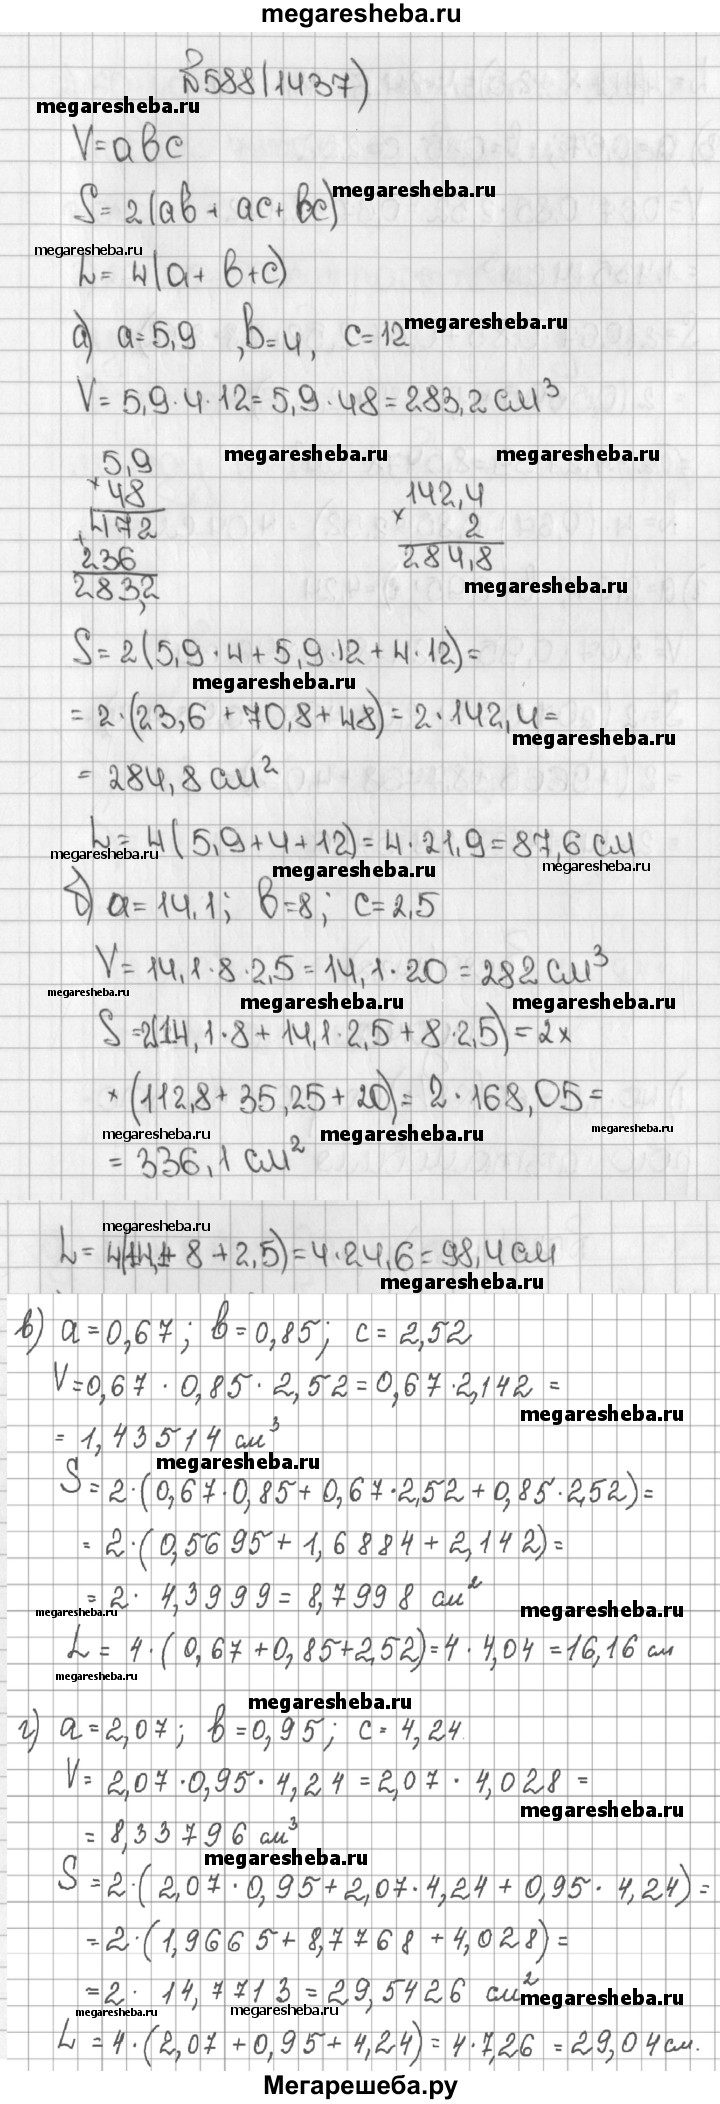 megaresheba.ru
№588(1437)
megaresheba.ru
V=авс
S=2(ав+ас+вс)
megaresheba.ru
megaresheba.ru
L=4(а+в+с)
а) а=5,9 , в=4, с=12
megaresheba.ru
V=5,9·4·12=5,9·48=283,2 см³
megaresheba.ru megaresheba.ru
5,9
×48
+472
236
283,2
142,4
× 2
284,8
megaresheba.ru
S=2(5,9·4+5,9·12+4·12)=
megaresheba.ru
=2·(23,6+70,8+48)=2·142,4=
megaresheba.ru
=284,8 см²
L=4(5,9+4+12)=4·21,9=87,6 см
megaresheba.ru megaresheba.ru megaresheba.ru
б) а=14,1; в=8; с=2,5
V=14,1·8·2,5=14,1·20=282 см³
megaresheba.ru megaresheba.ru megaresheba.ru
S=2(14,1·8+14,1·2,5+8·2,5)=2×
×(112,8+35,25+20)=2·168,05=
megaresheba.ru megaresheba.ru megaresheba.ru
=336,1 см²
megaresheba.ru
L=4(14,1+8+2,5)=4·24,6=98,4 см
megaresheba.ru
в) а=0,67; в=0,85; с=2,52
V=0,67·0,85·2,52=0,67·2,142=
megaresheba.ru
=1,43514 см³
megaresheba.ru
S=2·(0,67·0,85+0,67·2,52+0,85·2,52)=
=2·(0,5695+1,6884+2,142)=
=2·4,3999=8,7998 см²
megaresheba.ru megaresheba.ru
L=4·(0,67+0,85+2,52)=4·4,04=16,16 см
megaresheba.ru
megaresheba.ru
г) а=2,07; в=0,95; с=4,24.
V=2,07·0,95·4,24=2,07·4,028=
megaresheba.ru
=8,33796 см³
megaresheba.ru
S=2·(2,07·0,95+2,07·4,24+0,95·4,24)=
=2·(1,9665+8,7768+4,028)=
=2·14,7713=29,5426 см²
megaresheba.ru megaresheba.ru megaresheba.ru
L=4·(2,07+0,95+4,24)=4·7,26=29,04 см.
Мегарешеба.ру